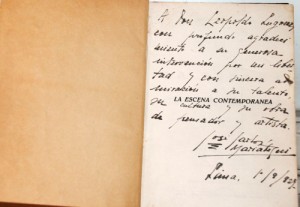 A Don Leopoldo Lugones,
con profundo agradeci-
miento a su generosa
intervención por mi liber-
tad y con sincera ad-
miración a su talento,
LA ESCENA CONTEMPORANEA
su cultura y su obra
de pensador y artista.
José Carlos
Mariátegui
Lima,